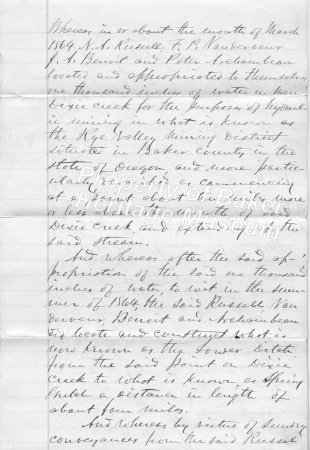 Whereas in or about the month of March
1864 N. A. Russell, F. P. Vandervour
J. A. Benoit and Peter Archambeau
located and appropriated to themselves
one thousand inches of water in
Dixie Creek for the purposes of hydraul-
ic mining in what is known as
the Rye Valley Mining District
situate in Baker County in the
state of Oregon, and more partic-
ularly as commencing
at a point about miles more
or less the mouth of said
Dixie Creek and extending the
said stream.
And whereas after the said ap-
propriation of the said one thousand
inches of water, to wit in the sum-
mer of 1864 the said Russell Van
dervour Benoit and Archambeau
did locate and construct what is
now known as the Lower Ditch
from the said point on Dixie
Creek to what is known as Spring
Gulch a distance in length of
about four miles.
And whereas by virtue of sundry
conveyances from the said Russel